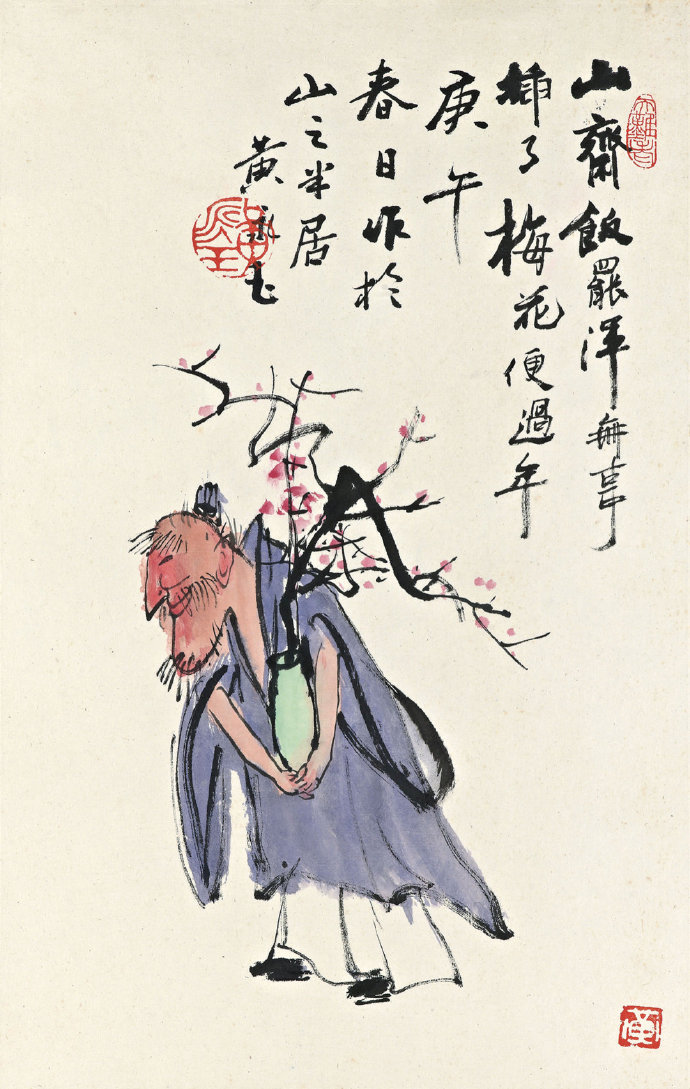 山齋飯罷渾無事
插了梅花便過年
庚午
春日作於
山之半居
黃永玉